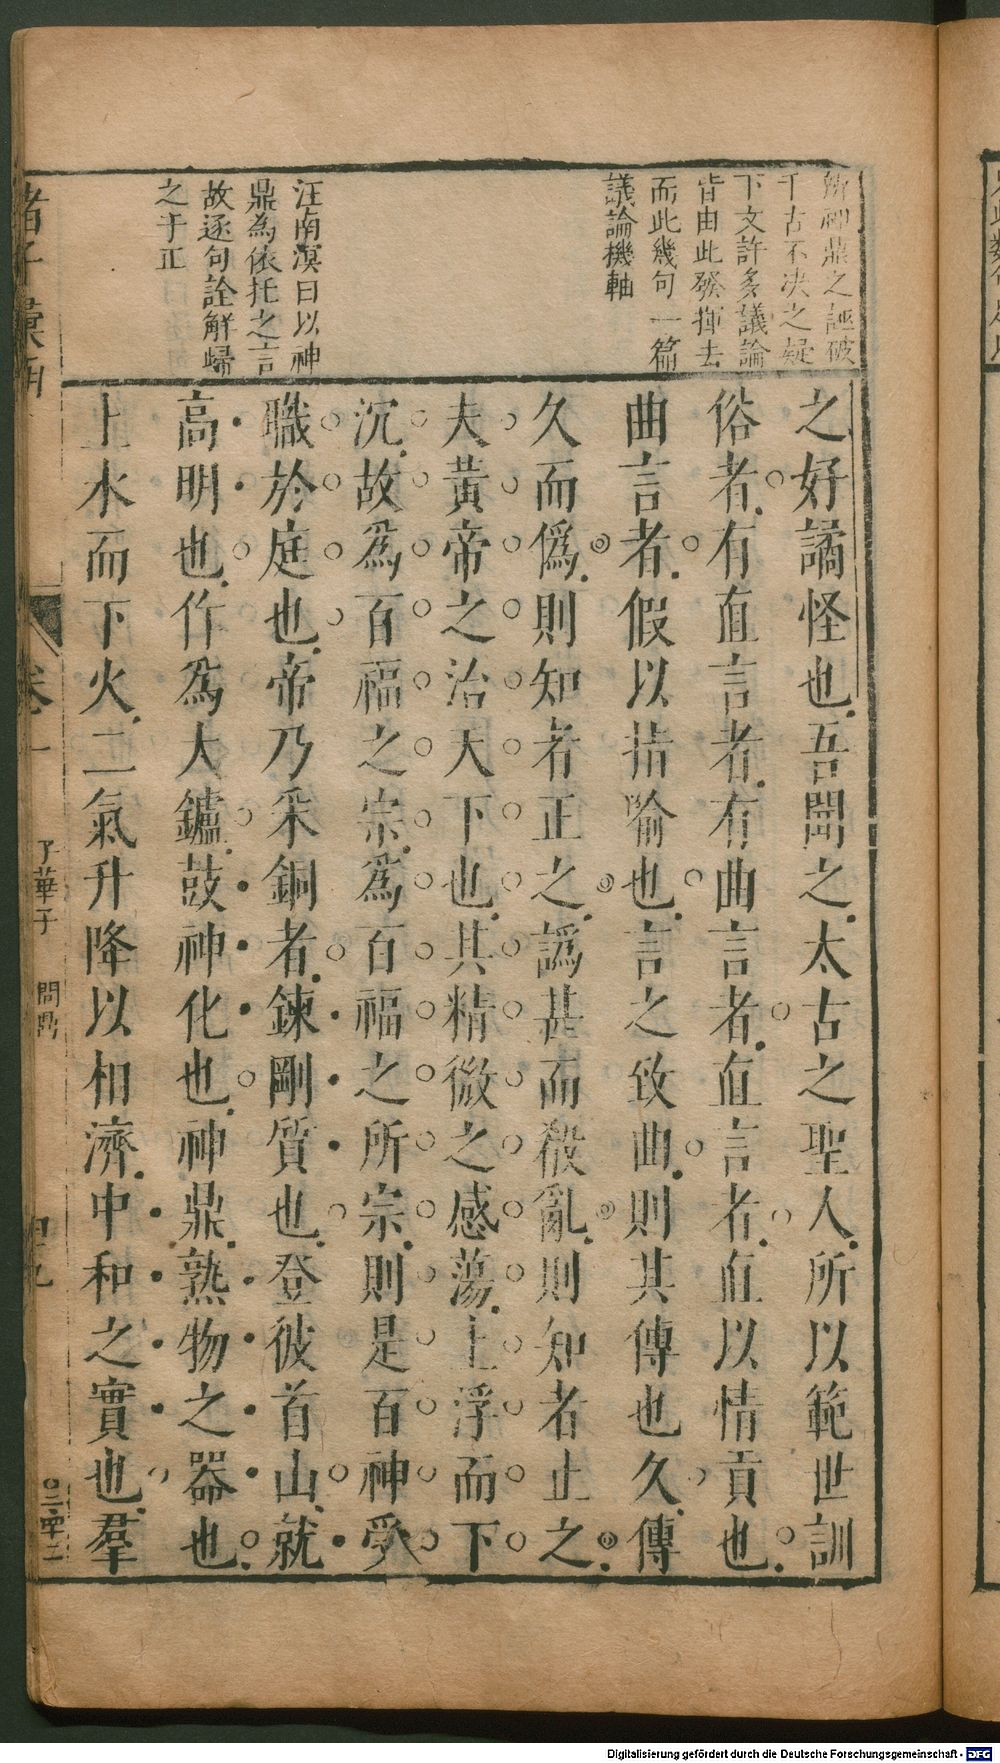 所神鼎之誣破
千古不决之疑
下文許多議論
皆由此發揮去
而此幾句一篇
議論機軸
汪南溟曰以神
鼎為依托之言
故逐句詮解歸
之于正
之好譎怪也吾聞之太古之聖人所以範世訓
俗者有直言者有曲言者直言者直以情貢也
曲言者假以指喻也言之致曲則其傳也久傳
久而僞則知者正之譌甚而殽亂則知者止之
夫黃帝之治天下也其精微之感蕩上浮而下
沉故爲百福之宗爲百福之所宗則是百神受
職於庭也帝乃采銅者鍊剛質也登彼首山就
高明也作爲大鑪鼓神化也神鼎熟物之器也
上水而下火二氣升降以相濟中和之實也羣
諸子彙函
卷一
子華子 問鼎
Digitalisierung gefördert durch die Deutsche Forschungsgemeinschaft - DFG